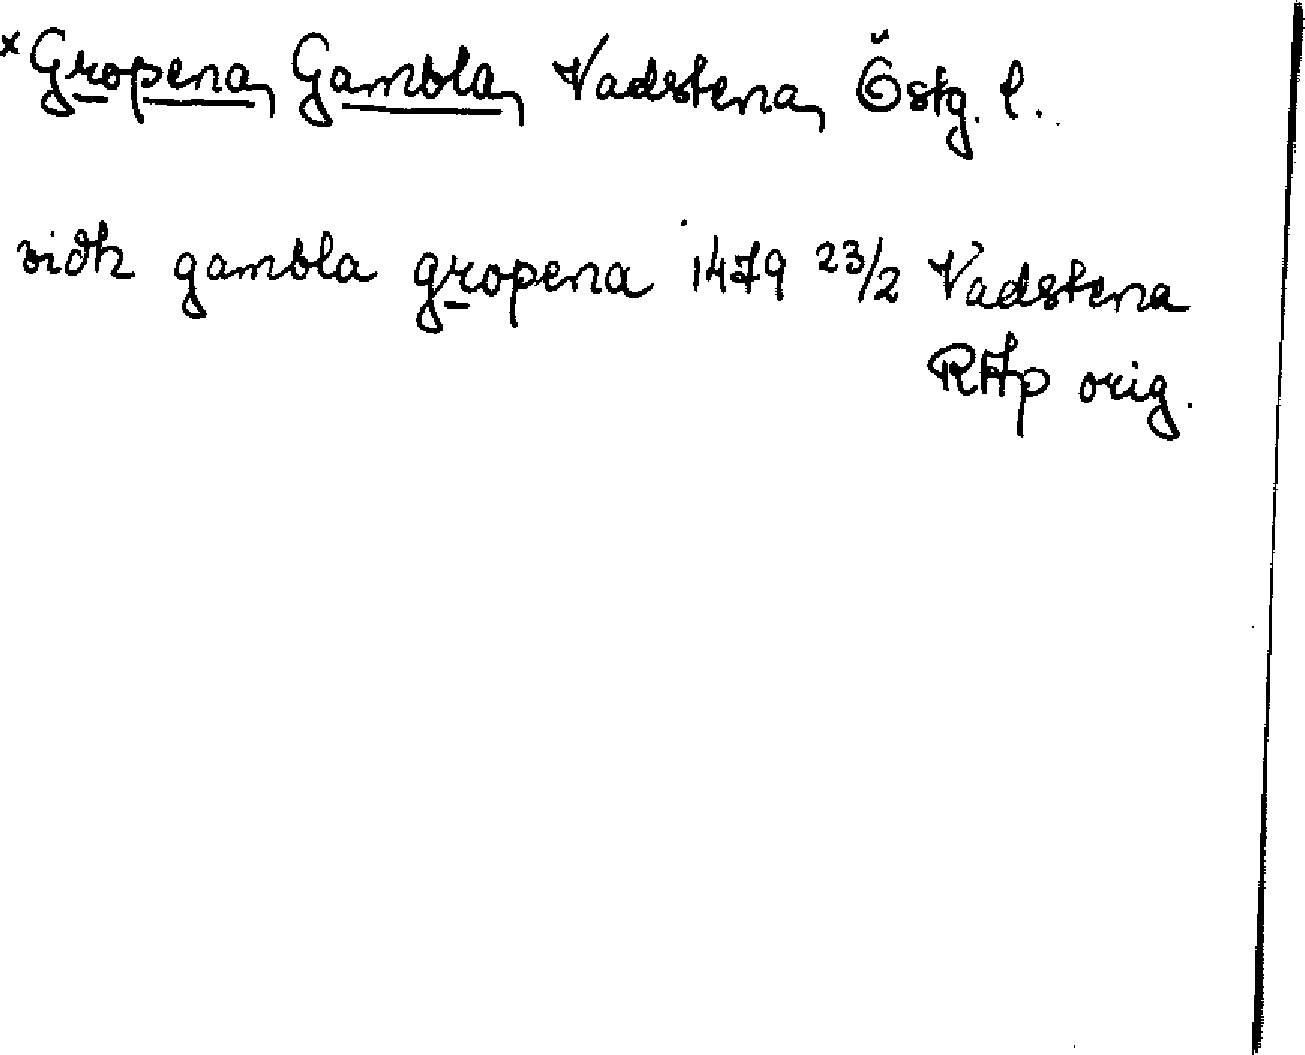 *Gropena, Gambla, Vadstena, Östg. l.
vidh gambla gropena 1479 23/2 Vadstena
RAp orig.